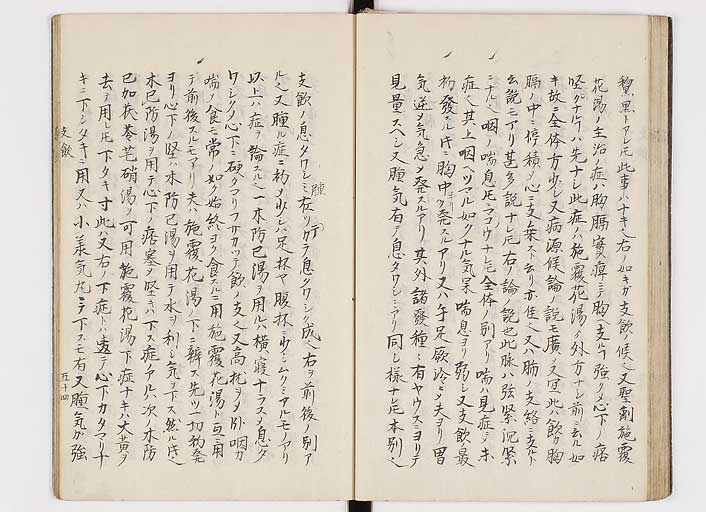 黧黒トアレ𪜈此事ハナキ之右ノ如キガ支飲ノ候之又聖剤施覆
花湯ノ主治ノ症ハ胸膈實痺ニテ胸支ルヿ強クメ心下ノ痞
堅ガナルハ先ナレ此症ハ施覆花湯ノ外方ナシ前ニ云ル如
キ故ニ全体方少シ又病源候論ノ説モ廣メ又宜此ハ飲ガ胸
膈ノ中ニ停積メ心ニ支乗スト云リ亦佳之又ハ肺ノ支絡ニ支ルト
云説モアリ甚多説ナレ𪜈右ノ論説也此脉ハ弦緊沉緊
ニナル之咽ノ喘息𪜈ナレ𪜈全体ノ別アリ喘ハ見症ニテ未
症之其上咽ヘツマル如クナル気味喘息ヨリ弱シ又支飲最
初發スル𪜈ニ胸中発スルアリ又ハ手足厥冷メ夫ヨリ胃
気逆メ気急メ発スルアリ其外諸發種々有ヤウスニヨリテ
見量スヘシ又腫気有テ息タワシミアリ同シ様ナレ𪜈本別之
支飲ノ息タワシミ在リ腫ガテ息タワシク成之右ヲ前後ノ別ア
ル之又腫ル症ニ初メ少シハ足抔ヤ腹抔ニ少シムクミアルモノアリ
以上ハ症ヲ論スル之一木防已湯ヲ用ルハ横寝ナラスメ息タ
ワシクメ心下ニ硬タマリフサカツテ飲ノ支之又高枕ヲメ外咽カ
喘メ食モ常ノ如ク始終ヨク食スルニ用施覆花湯ト互ニ用
テ前後スルモアリ夫ハ施覆花湯ノ下ニ辨ス先ツ一切初発
ヨリ心下ノ堅ハ木防已湯ヲ用テ水ヲ利シ気ヲ下ス然ル𪜈之
木已防湯ヲ用テ心下ノ痞塞メ堅キハ下ス症アル𪜈次ノ木防
已加茯苓芒硝湯ノ可用施覆花湯下症ナキハ大黄ヲ
去テ用レ𪜈下タキ寸此ハ又右ノ下症トハ違テ心下カタマリナ
キニ下シタキニ用又ハ小羨気丸ニテ下スモ有又腫気ガ強
支飲
五十四